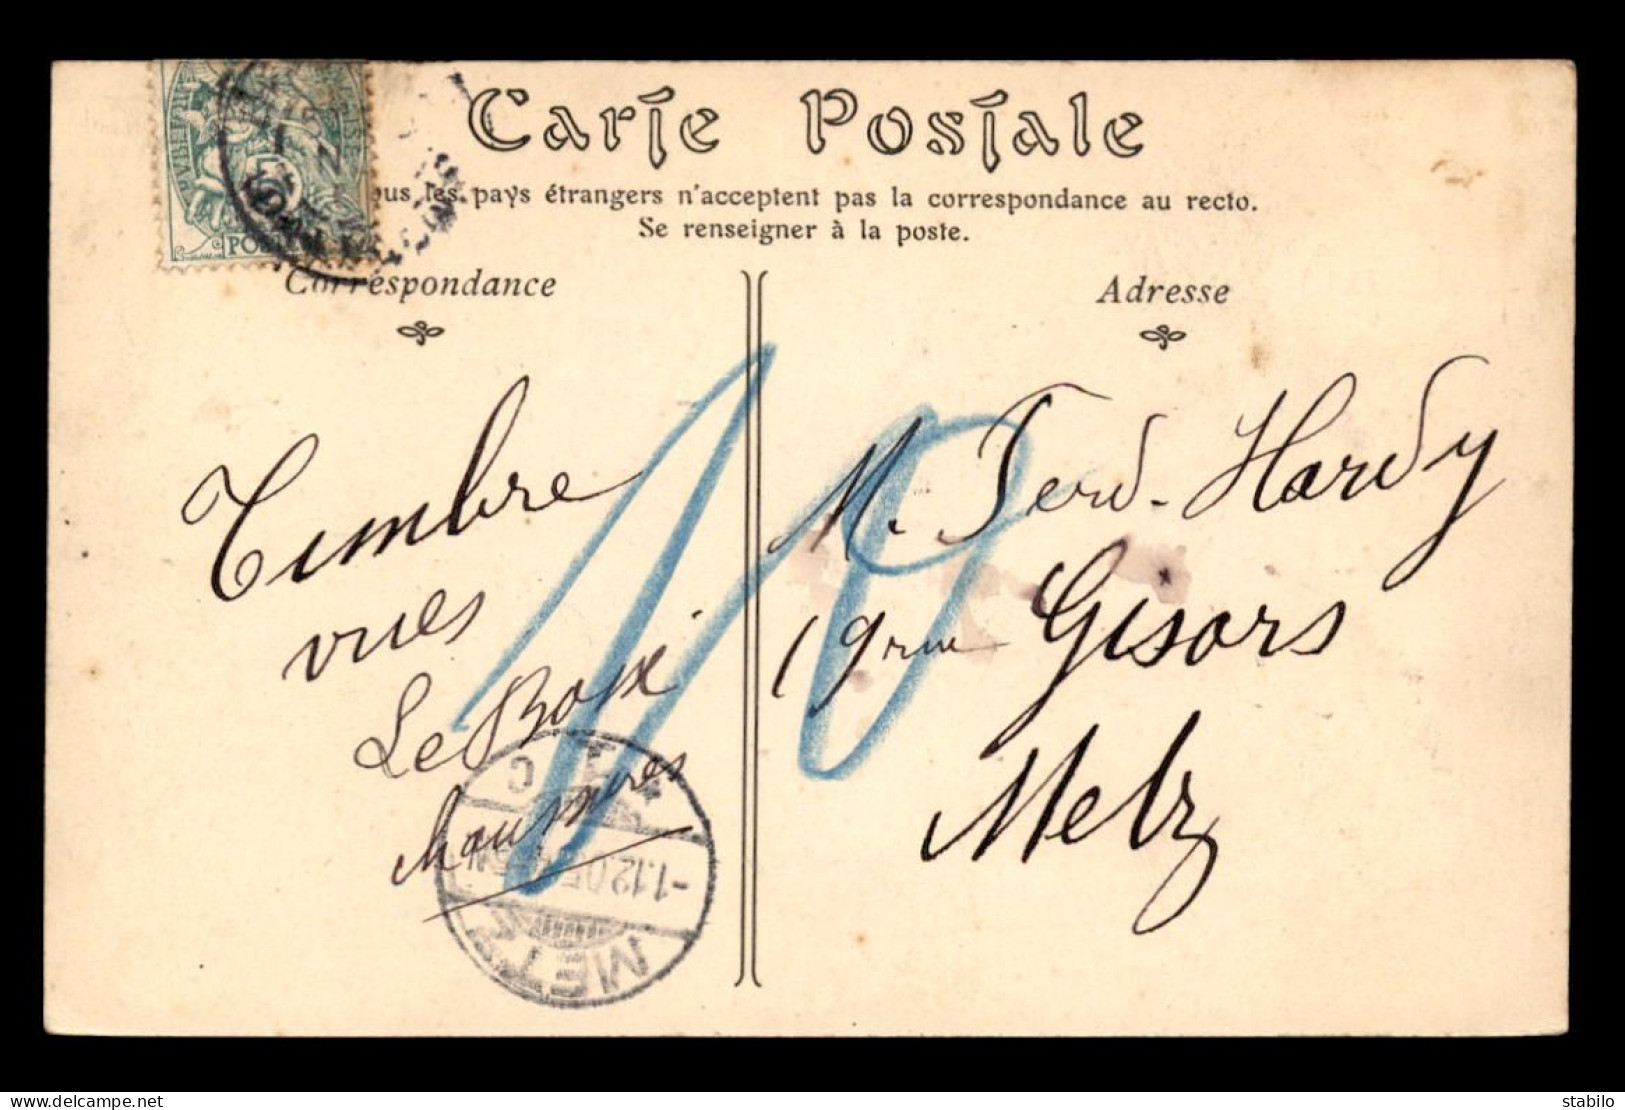 Carte Postale
ous les pays étrangers n'acceptent pas la correspondance au recto.
Se renseigner à la poste.
Correspondance
Adresse
10
Timbre
vues
Le
M. Ferd. Hardy
19 rue Gisors
Metz
C
-1.12.05
METZ
© delcampe.net
stabilo